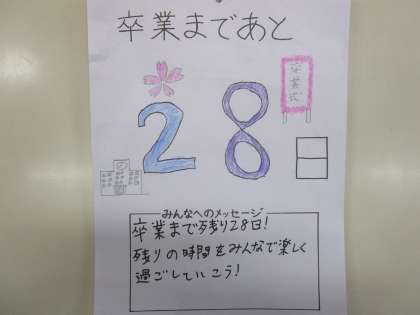 卒業まであと
卒業式
28日
みんなへのメッセージ
卒業まで残り28日!
残りの時間をみんなで楽しく
過ごしていこう!